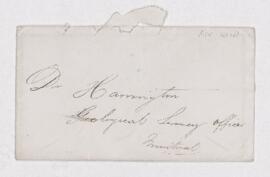 Dr Harrington
Geological Survey office
Montreal